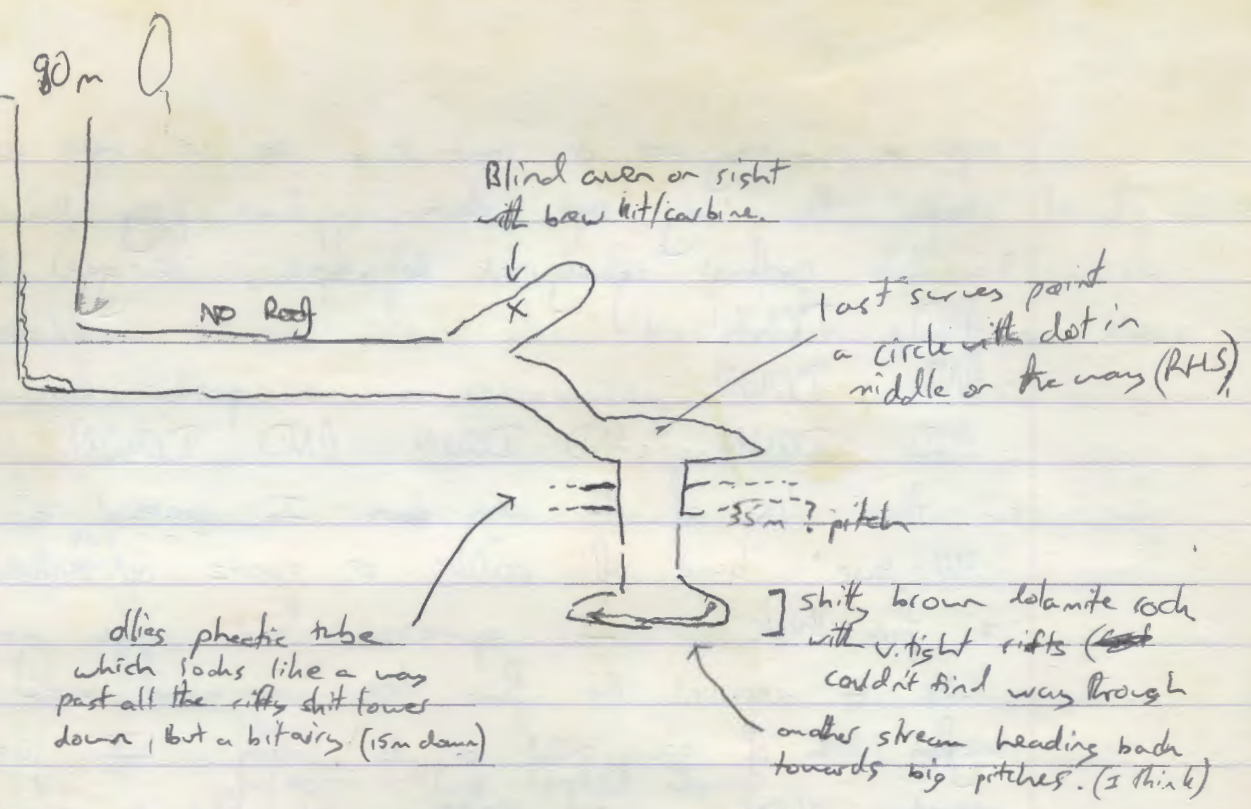 90m
Blind aven on right
with brew kit/carbine.
NO Roof
last survey point
a circle with dot in
middle on the way (RHS)
35m? pitch
ollies phreatic tube
which looks like a way
past all the rifty shit lower
down, but a bit airy (15m down)
shitty brown dolamite rock
with v. tight rifts (
couldn't find way through
another stream heading back
towards big pitches. (I think)